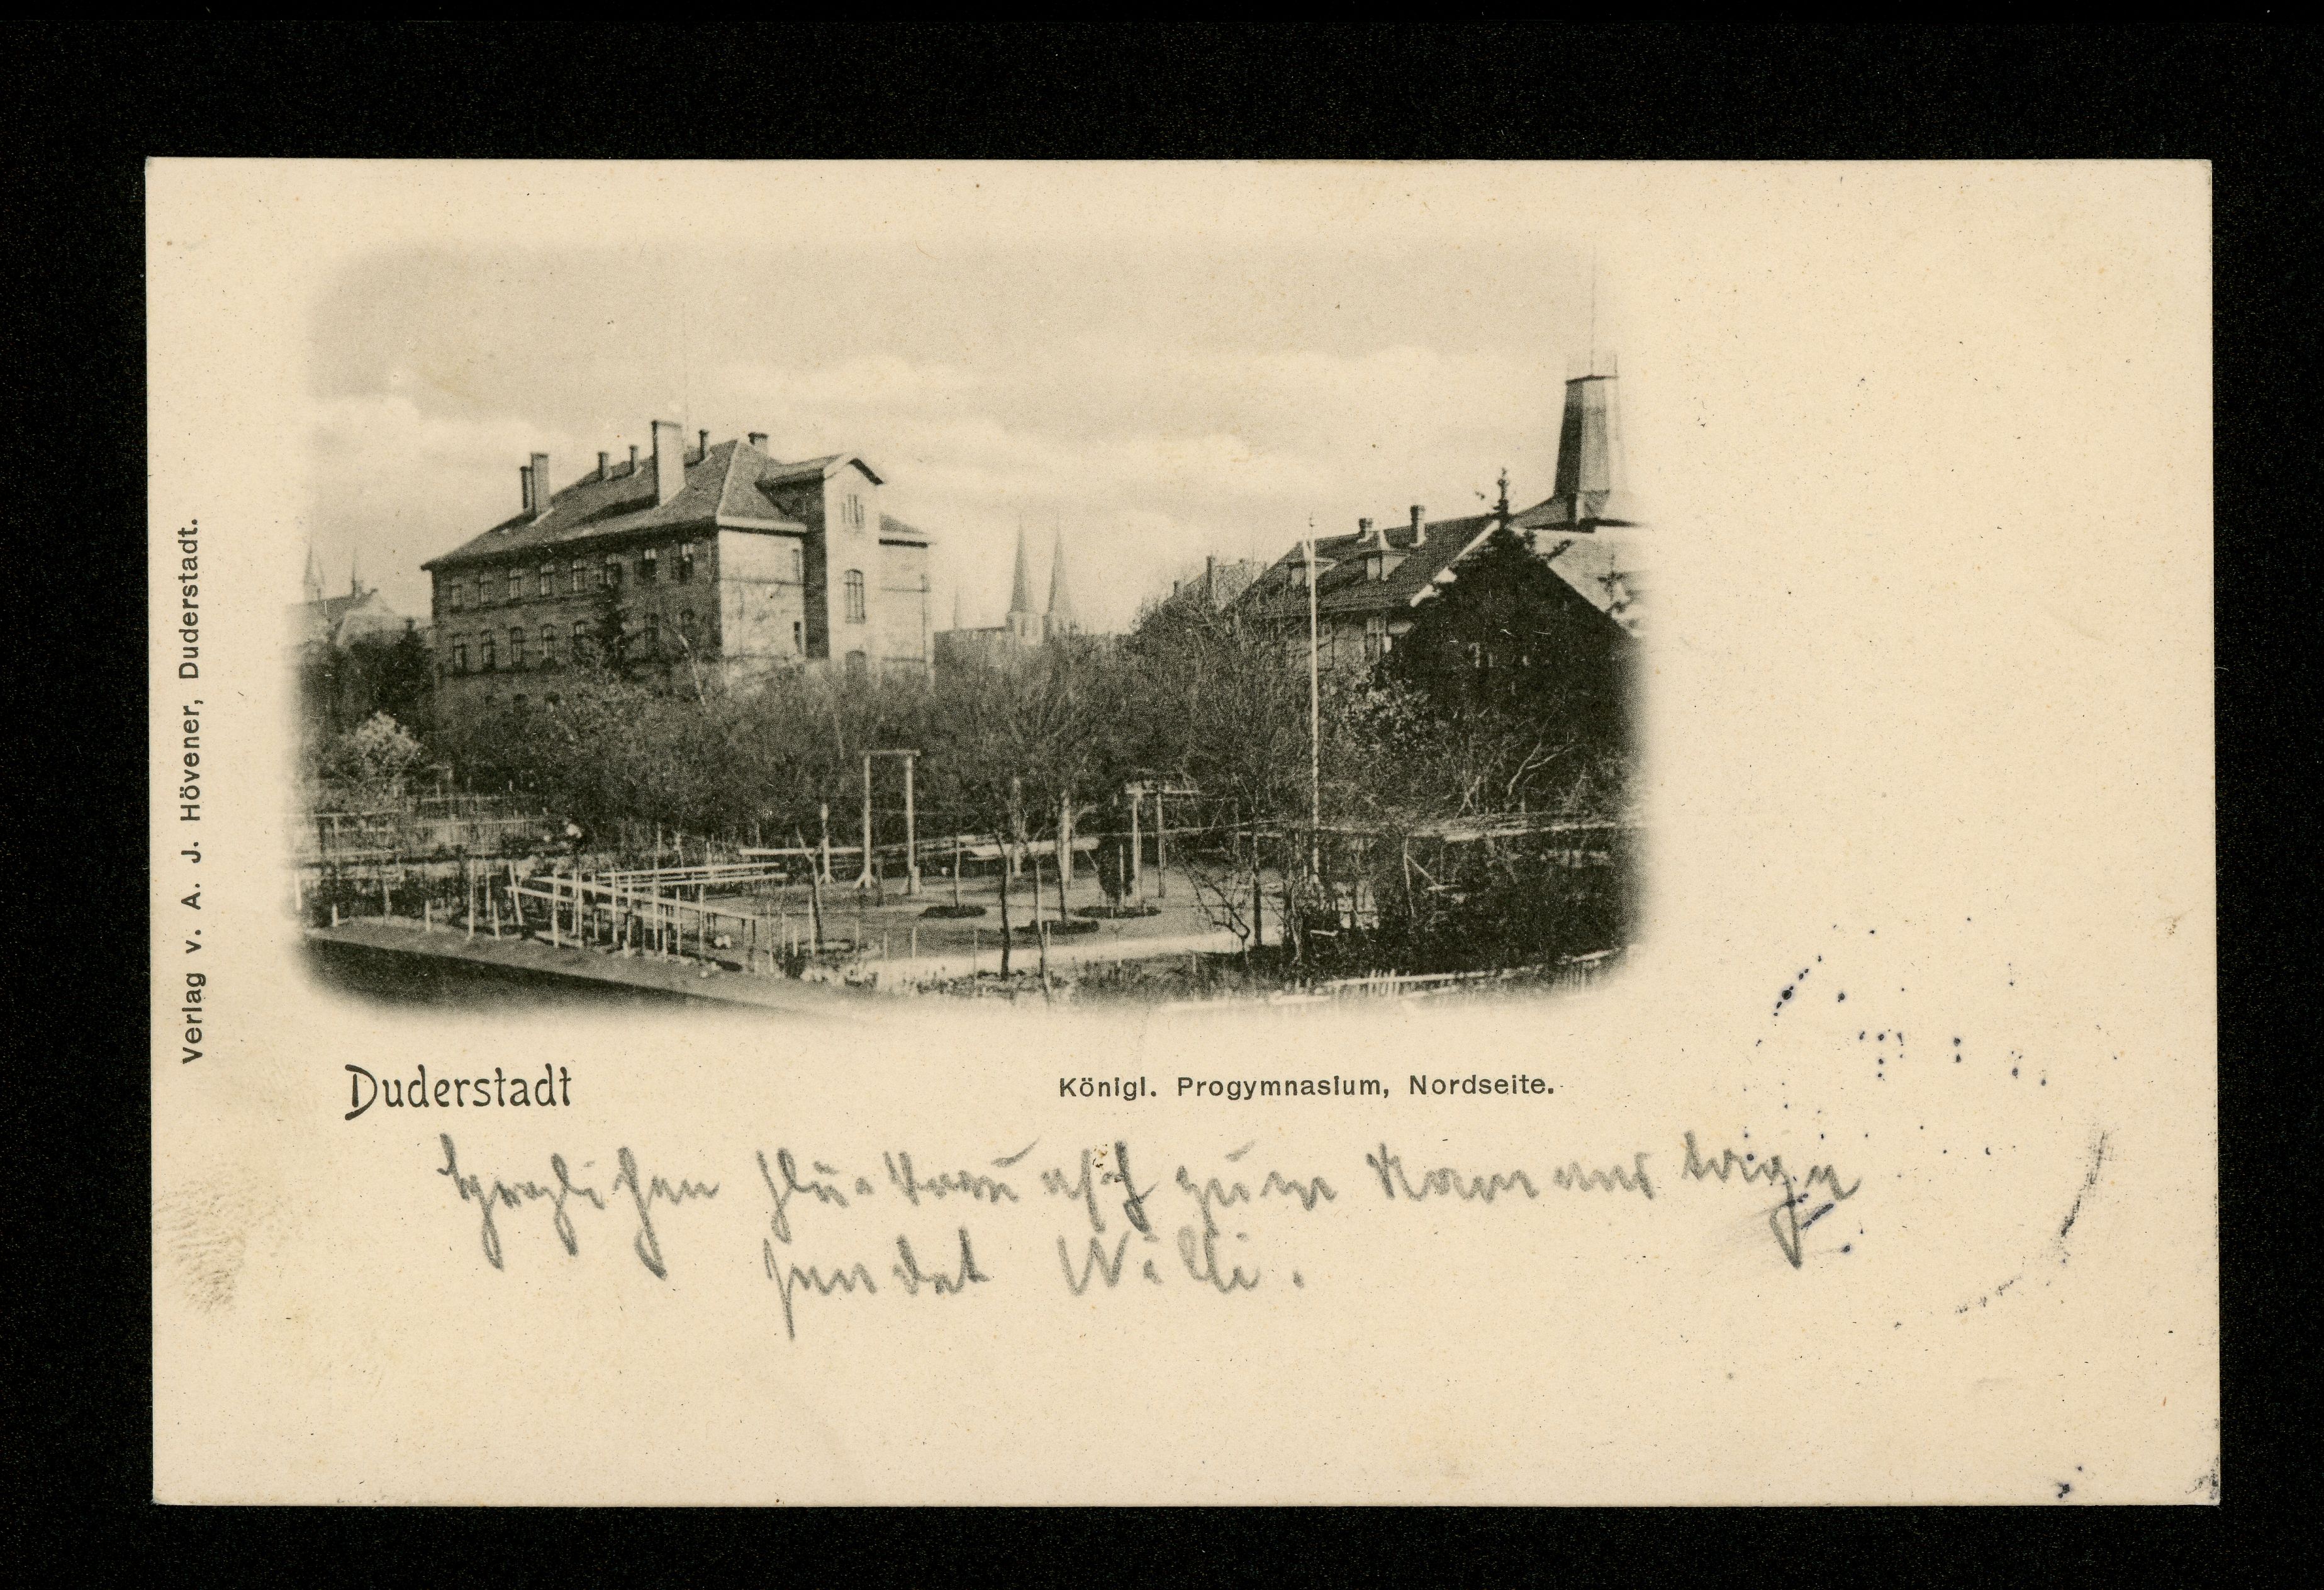 Verlag v. A. J. Hövener, Duderstadt.
Duderstadt
Königl. Progymnasium, Nordseite.
Herzlichen Glückwunsch zum Namenstage
sendet Willi.